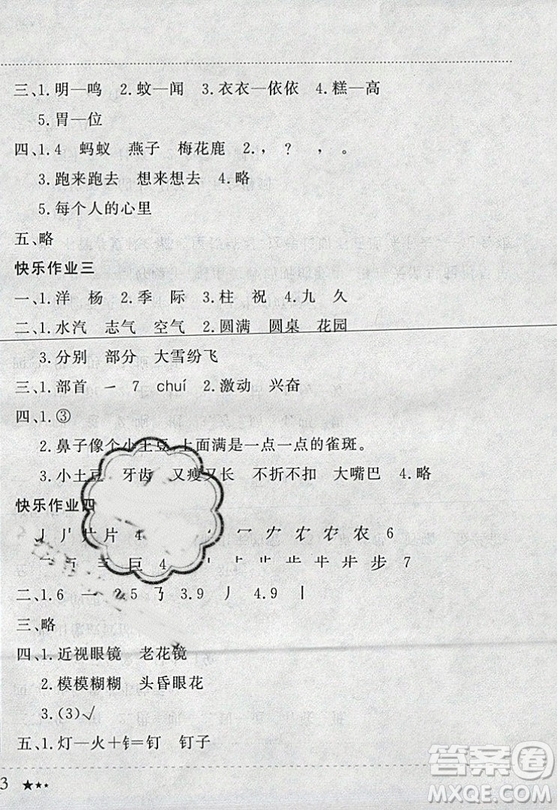 三、1.明—鸣　2.蚊—闻　3.衣衣—依依　4.糕—高
5.胃—位
四、1.4　蚂蚁　燕子　梅花鹿　2.，　？　，　。
3.跑来跑去　想来想去　4.略
5.每个人的心里
五、略
快乐作业三
一、1.洋　杨　2.季　际　3.柱　祝　4.九　久
二、1.水汽　志气　空气　2.圆满　圆桌　花园
3.分别　部分　大雪纷飞
三、1.部首　一　7　chuí　2.激动　兴奋
四、1.③
2.鼻子像个小土豆,上面满是一点一点的雀斑。
3.小土豆　牙齿　又瘦又长　不折不扣　大嘴巴　4.略
快乐作业四
丿　丿丨　片　片　4　农　农　农　6
巨　4　步　步　7
二、1.6　一　2.5　㇋　3.9　丿　4.9　丨
三、略
四、1.近视眼镜　老花镜
2.模模糊糊　头昏眼花
3.(3)√
五、1.灯—火+钅=钉　钉子
3 ★★★
答案圈
MXQE.COM